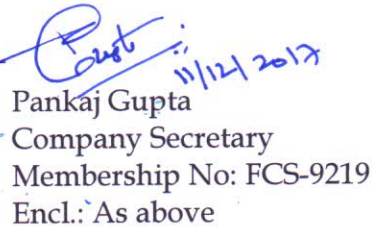 11/12/2017
Pankaj Gupta
Company Secretary
Membership No: FCS-9219
Encl.: As above